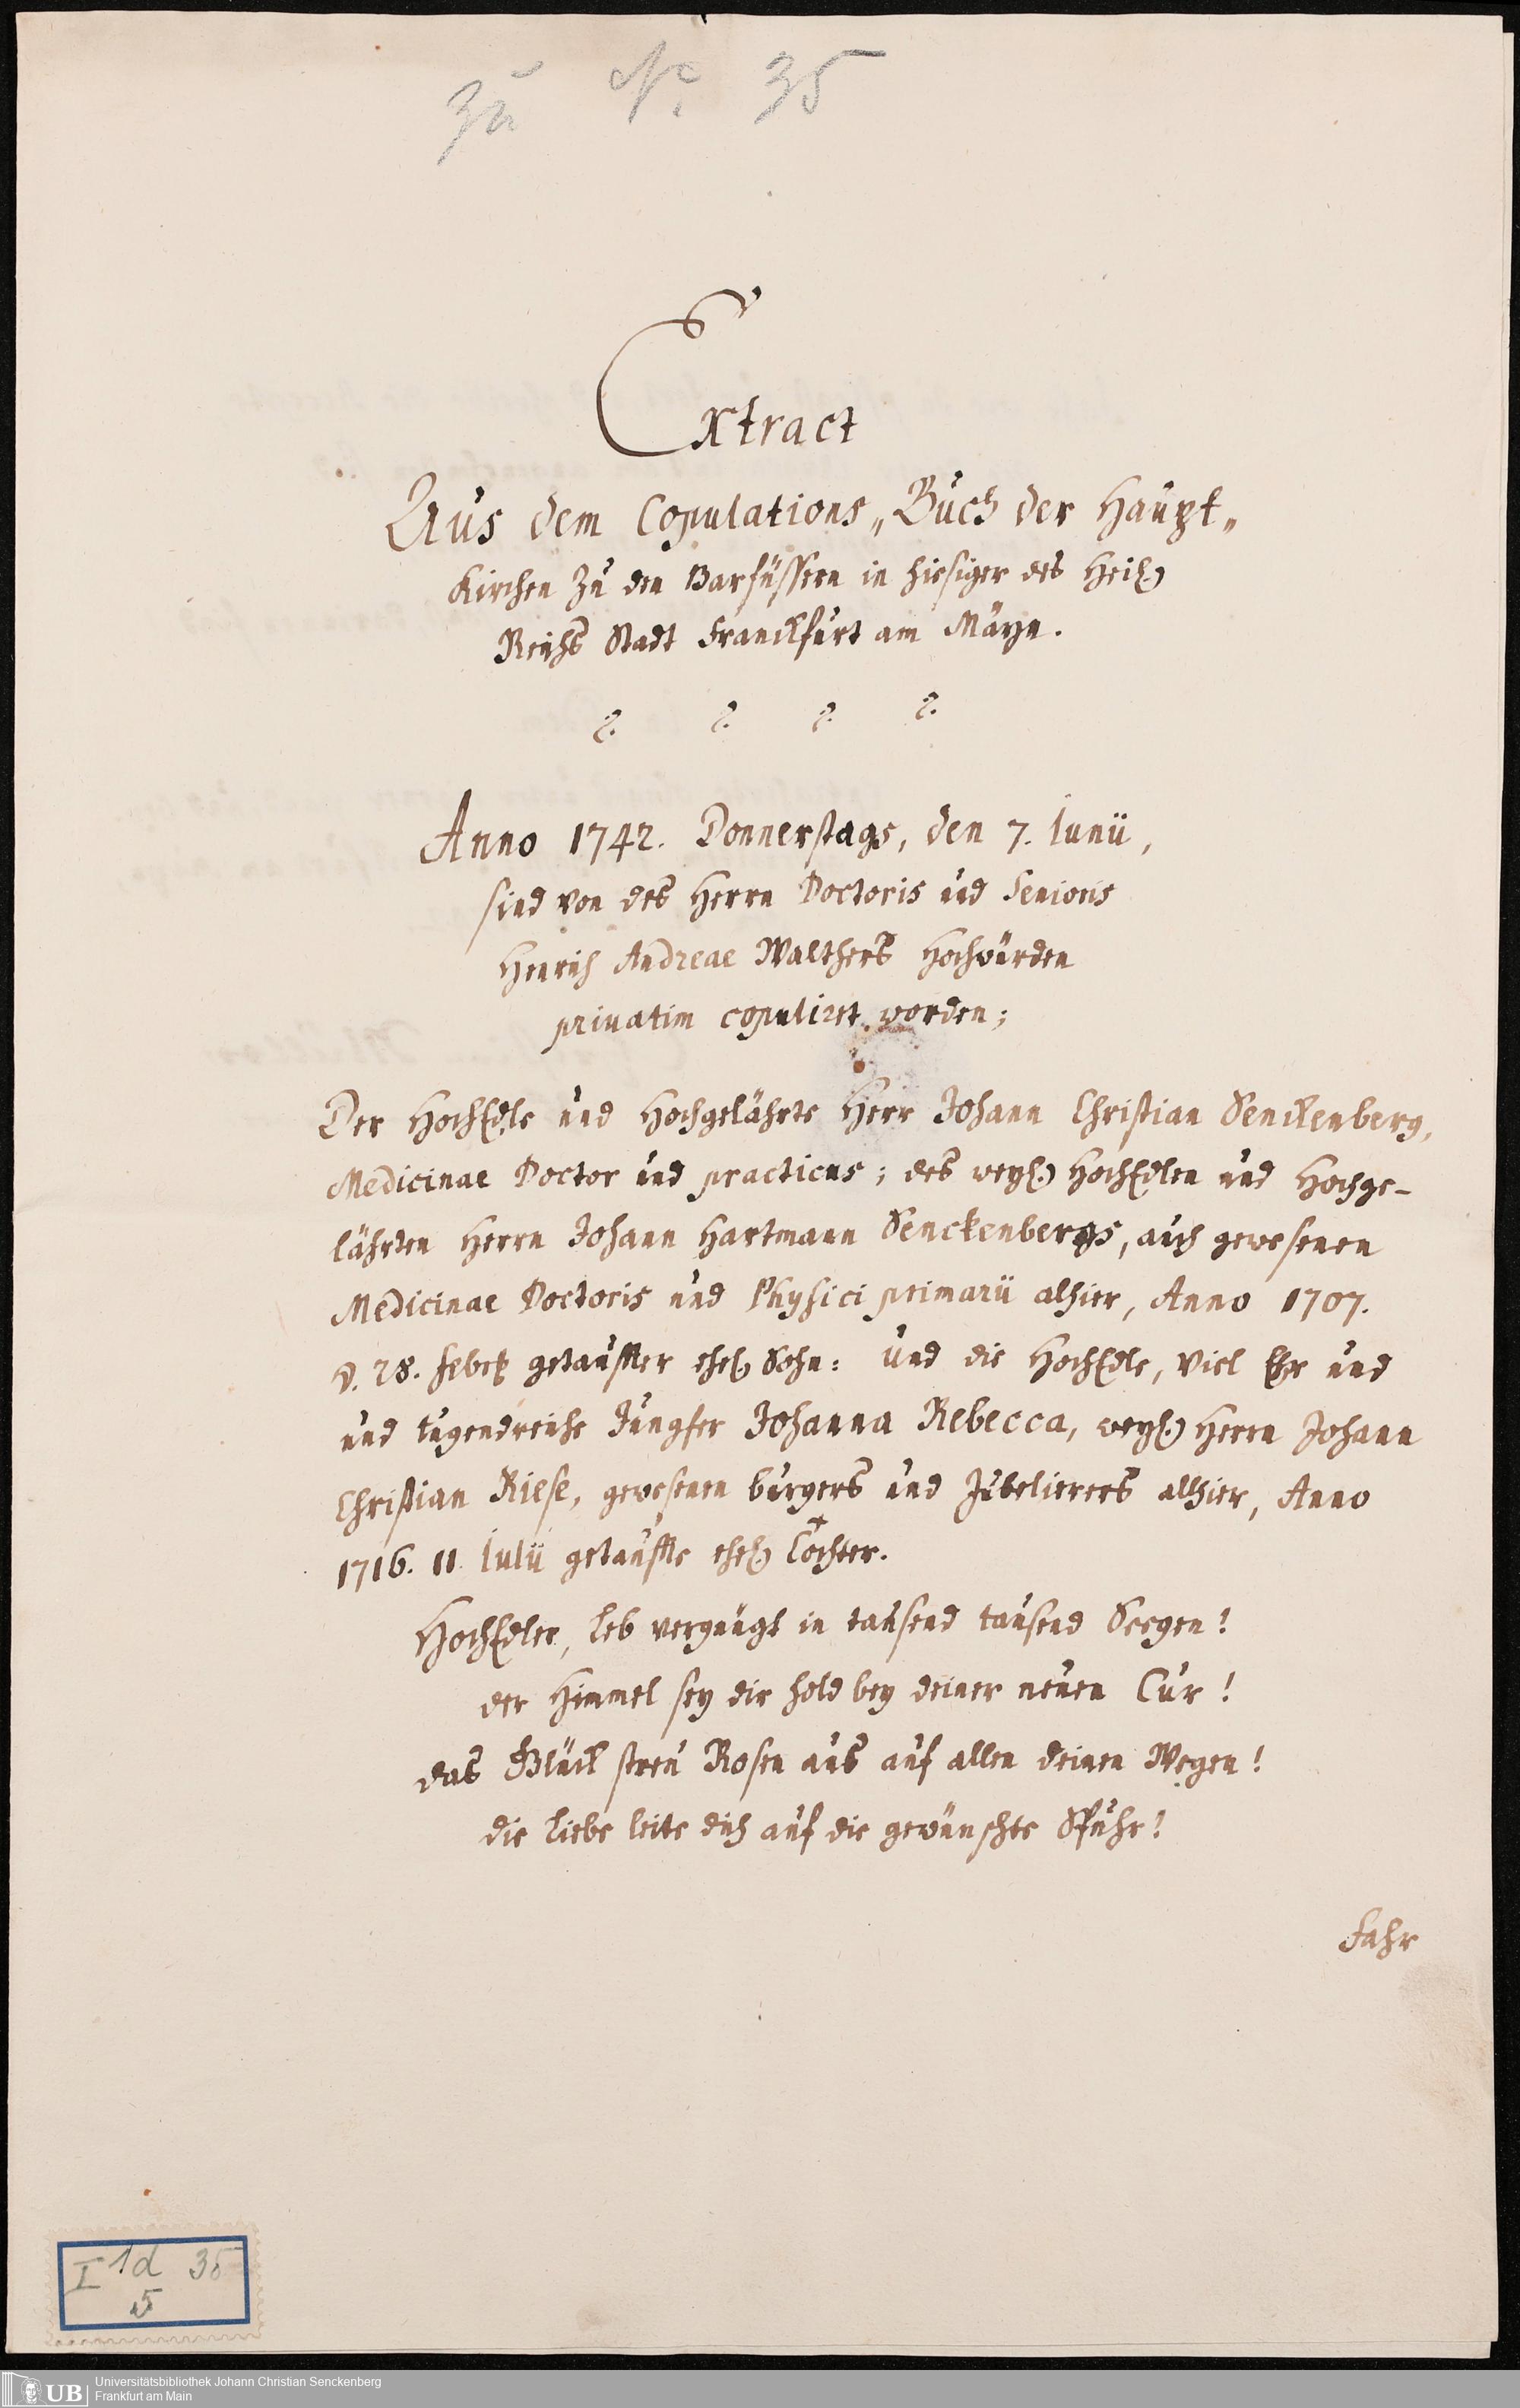 zu No. 35
Extract
Aus dem Copulations„Buch der Haupt„
Kirchen zu den Barfüssern in hiesiger des Heil.
Reichs Stadt Franckfurt am Mäyn.
Anno 1742. Donnerstags, den 7. Iunii,
sind von des Herrn Doctoris und Senioris
Henrich Andreae Walthers Hochwürden
privatim copuliret worden;
Der HochEdle und Hochgelährte Herr Johann Christian Senckenberg,
Medicinae Doctor und practicus; des weyl. HochEdlen und Hochge-
lährten Herrn Johann Hartmann Senckenbergs, auch gewesenen
Medicinae Doctoris und Physici primarii alhier, Anno 1707.
d. 28. Febr. getauffter ehel. Sohn: und die HochEdle, Viel Ehr und
und tugendreiche Jungfer Johanna Rebecca, weyl. Herrn Johann
Christian Riese, gewesenen burgers und Jubelierers allhier, Anno
1716. 11. Iulii getauffte ehel. Tochter.
HochEdler, leb vergnügt in tausend tausend Seegen!
der Himmel sey dir hold bey deiner neuen Cur!
das Glück streu Rosen aus auf allen deinen Wegen!
die Liebe leite dich auf die gewünschte Spuhr!
Fahr
I 1d 35
5
UB
Universitätsbibliothek Johann Christian Senckenberg
Frankfurt am Main